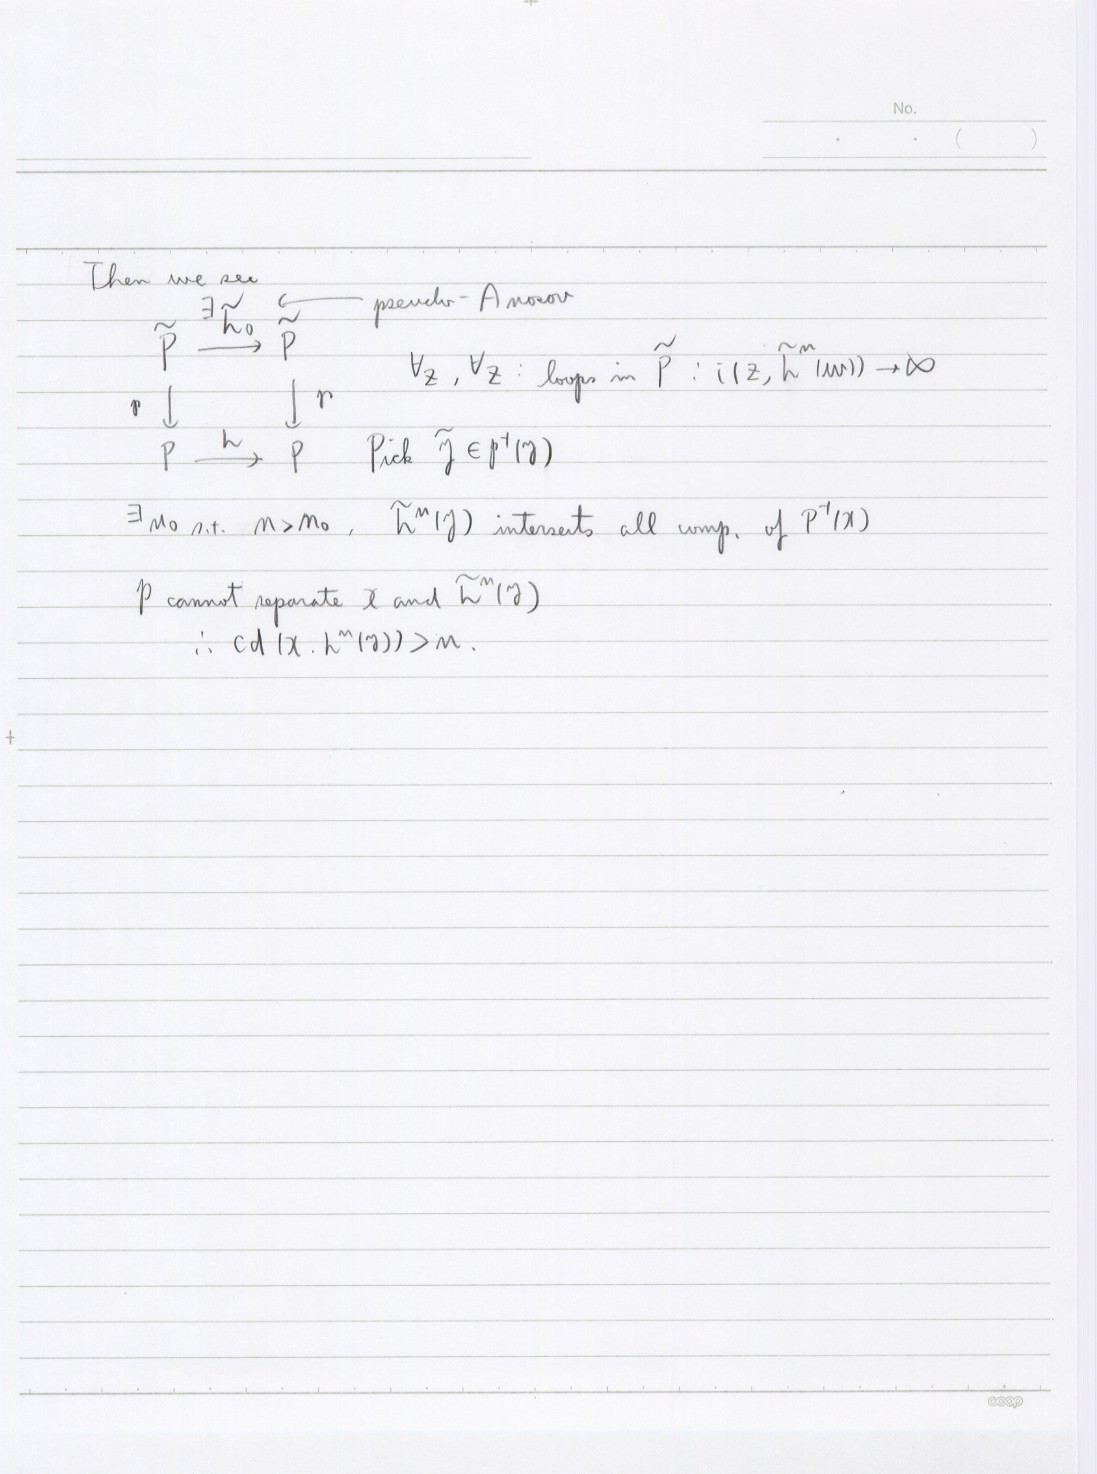 No.
· · ( )
Then we see
∃h̃₀ ← pseudo-Anosov
P̃ → P̃
∀z, ∀z : loops in P̃ : i(z, h̃ⁿ(w)) → ∞
p ↓ ↓ p
P —h→ P Pick ỹ ∈ p⁻¹(y)
∃n₀ s.t. n > n₀, h̃ⁿ(ỹ) intersects all comp. of p⁻¹(x)
p cannot separate x and h̃ⁿ(y)
∴ cd(x. hⁿ(y)) > n.
coop